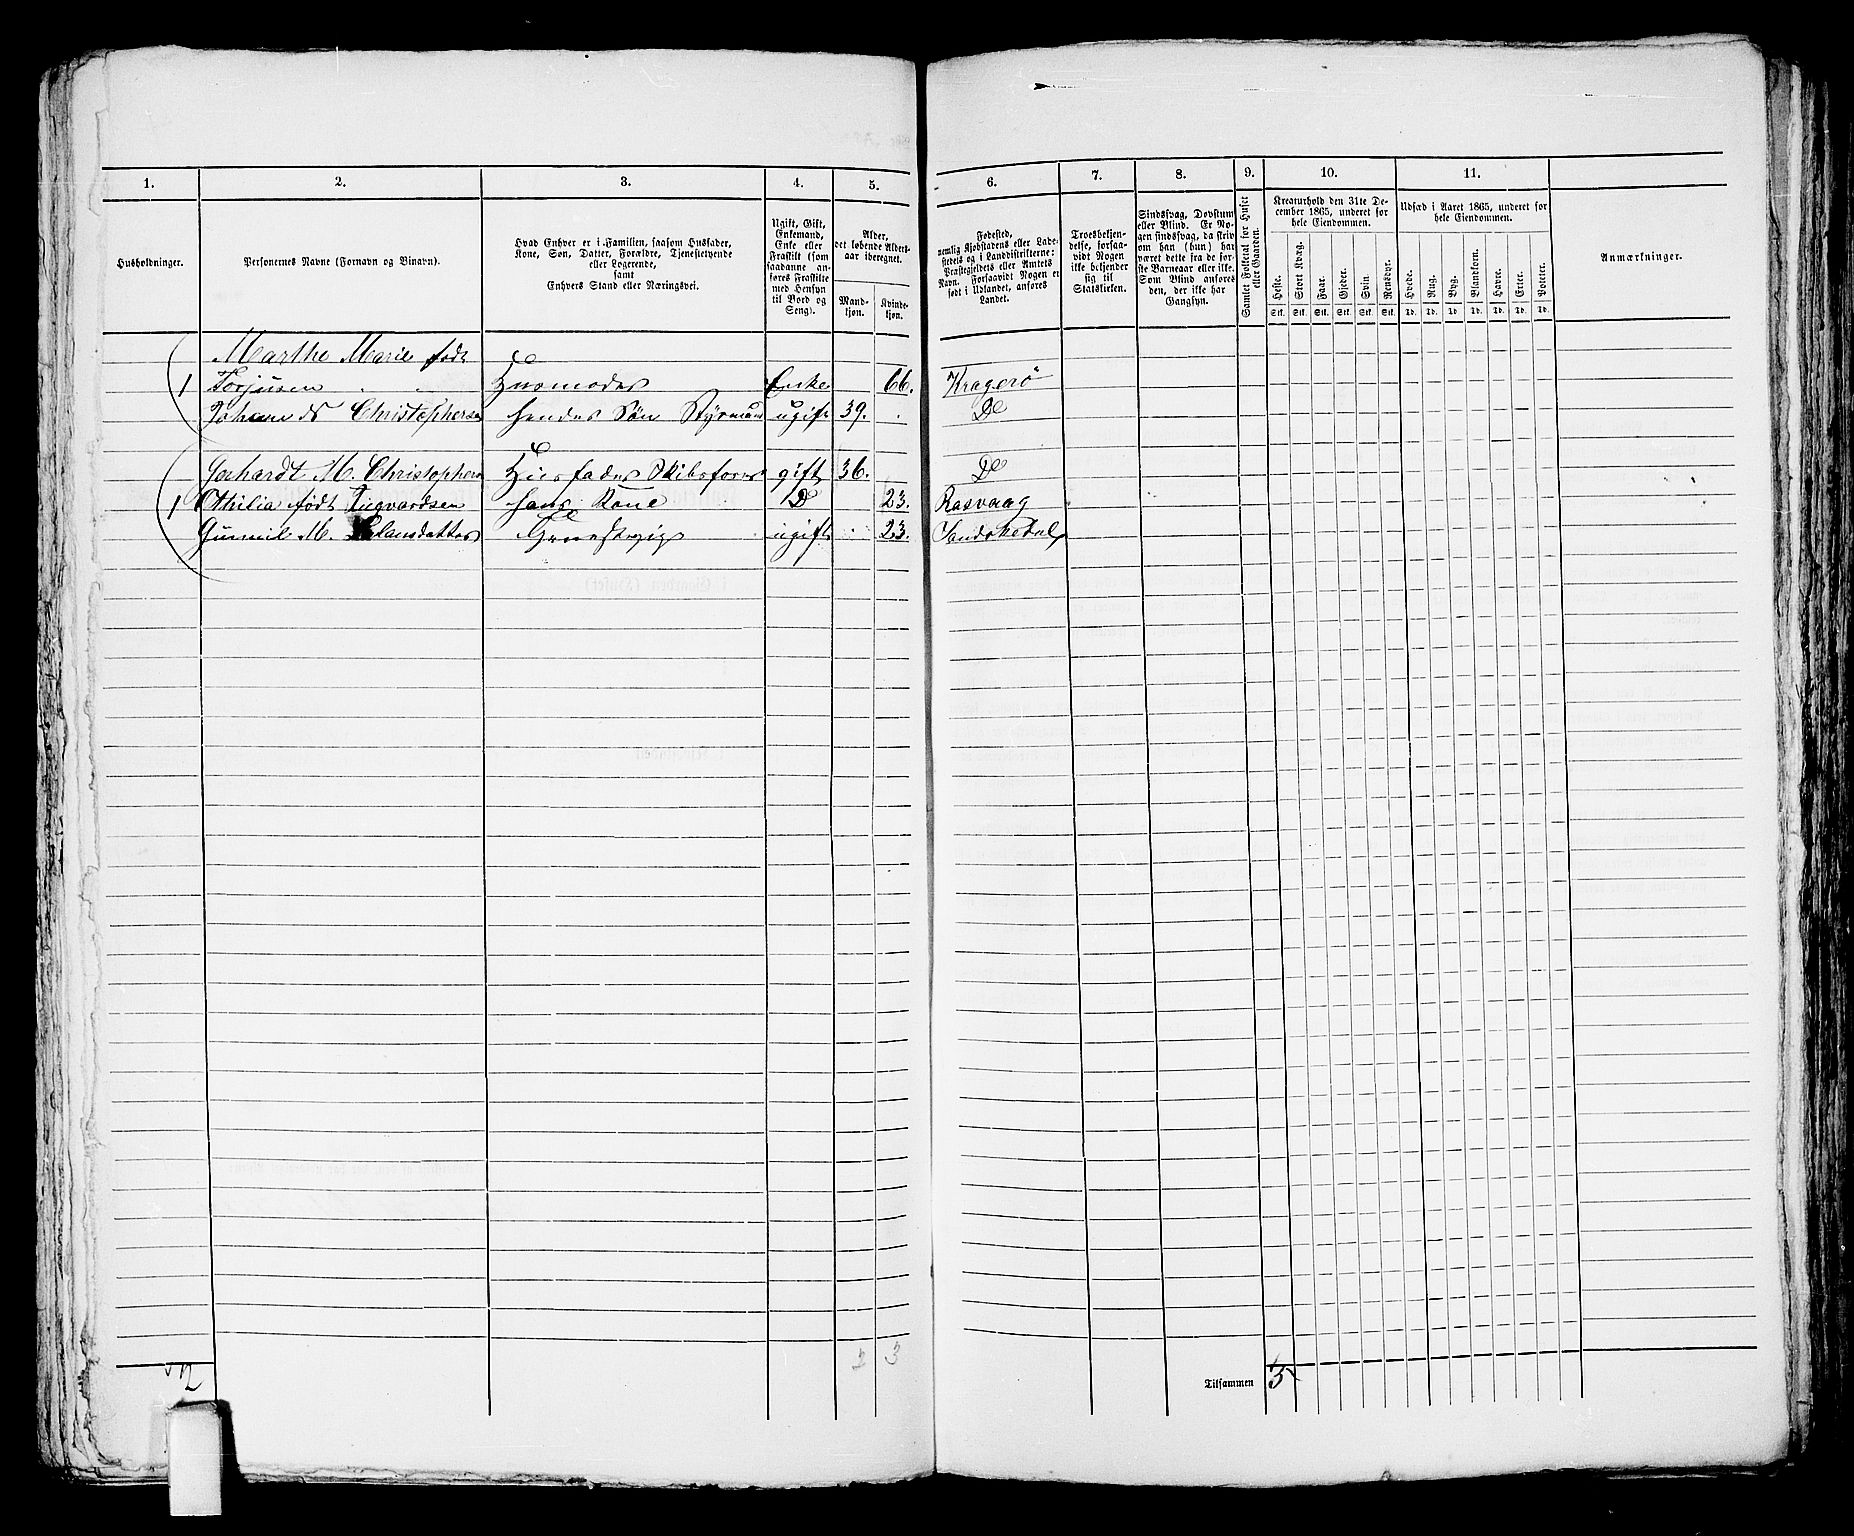 1. 2. 3. 4. 5. 6. 7. 8. 9. 10. 11.
Husholdninger.
Personernes Navne (Fornavn og Binavn).
Hvad Enhver er i Familien, saasom Husfader,
Kone, Søn, Datter, Forældre, Tjenestetyende
eller Logerende,
samt
Enhvers Stand eller Næringsvei.
Ugift, Gift,
Enkemand,
Enke eller
Fraskilt (som
saadanne an-
føres Fraskilte
med Hensyn
til Bord og
Seng).
Alder,
det løbende Alders-
aar iberegnet.
Mand-
kjøn.
Kvinde-
kjøn.
Fødested,
nemlig Kjøbstadens eller Lade-
stedets og i Landdistrikterne:
Præstegjeldets eller Amtets
Navn. Forsaavidt Nogen er
født i Udlandet, anføres
Landet.
Troesbekjen-
delse, forsaa-
vidt Nogen
ikke bekjender
sig til
Statskirken.
Sindssvag, Døvstum
eller Blind. Er No-
gen sindssvag, da skriv
om han (hun) har
været dette fra de før-
ste Barneaar eller ikke.
Som Blind anføres
den, der ikke har
Gangsyn.
Samlet Folketal for Huset
eller Gaarden.
Kreaturhold den 31te De-
cember 1865, underet for
hele Eiendommen.
Heste. Stort Kvæg. Faar. Gjeder. Svin. Rensdyr.
Stk. Stk. Stk. Stk. Stk. Stk.
Udsæd i Aaret 1865, underet for
hele Eiendommen.
Hvede. Rug. Byg. Blandkorn. Havre. Erter. Poteter.
Td. Td. Td. Td. Td. Td. Td.
Anmærkninger.
Marthe Marie født
1 Torjusen Huusmoder Enke 66. Kragerø
Christophersen hendes Søn Styrmand ugift 39. Do
Gerhardt M. Christophersen Huusfader Skibsfører gift 36. Do
1 Othilia født hans Kone Do 23. Rasvaag
M. ugift 23. Sandøkedal
2 2 3
Tilsammen 5